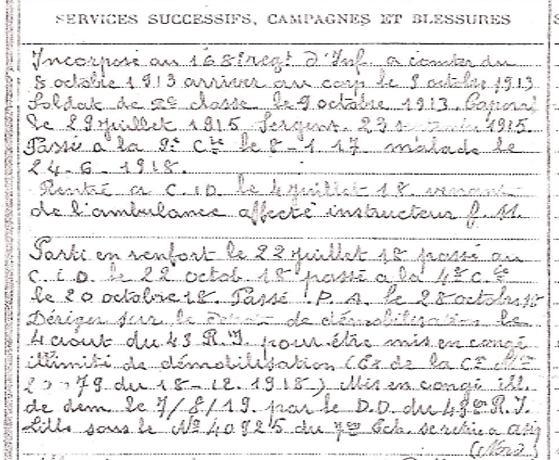 SERVICES SUCCESSIFS, CAMPAGNES ET BLESSURES
Incorporé au 168e regt d'Inf. a comter du
8 octobre 1913 arriver au corp le 9 octobre 1913
Soldat de 2e classe le 9 octobre 1913. Caporal
le 29 juillet 1915 Sergent 23 1915.
Passé a la 9e Cie le 8-1 17. malade le
24-6-1918.
Rentré a C.I.D. le 4 juillet 18 venant
de l'ambulance affecté instructeur f. M.
Parti en renfort le 22 juillet 18 passé au
C.I.D. le 22 octob 18 passé a la 4e Cie
le 20 octobre 18. Passé P.A. le 28 octobre 18
sur le de démobilisation le
4 aout du 43 R.I. pour être mis en congé
illimité de démobilisation (Ex de la Ce Mle
du 18-12.1918.) Mis en congé ill.
de dem. le 7/8/19. par le D.D. du R.I.
Lille sous le No 40925 du Ech. se retire a
(Nord)